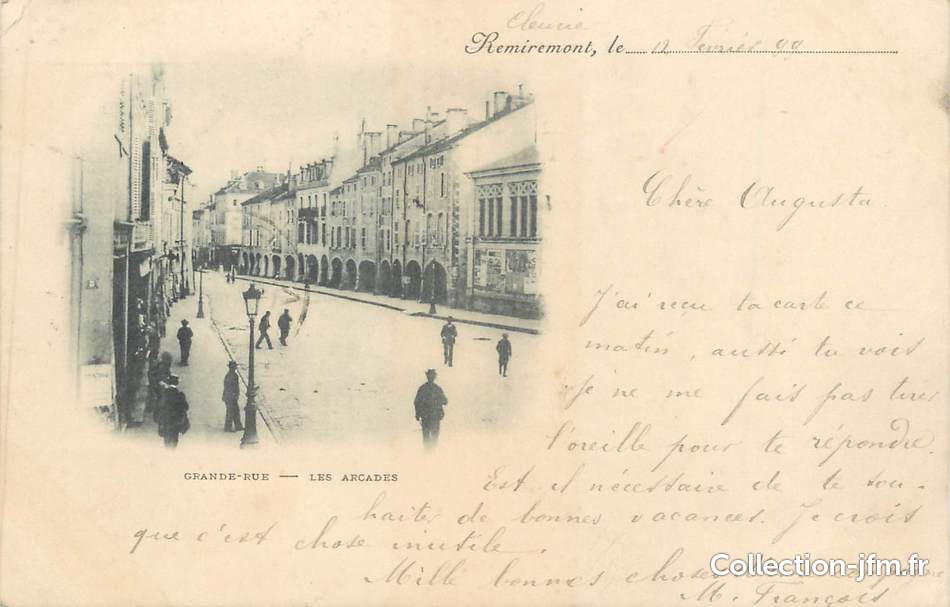 Cleurie
Remiremont, le 12 Février 99
Chère Augusta
J'ai reçu ta carte ce
matin, aussi tu vois
je ne me fais pas tirer
l'oreille pour te répondre.
GRANDE-RUE — LES ARCADES
Est il nécessaire de te sou-
haiter de bonnes vacances. Je crois
que c'est chose inutile.
Mille bonnes choses
Collection-jfm.fr
M. François